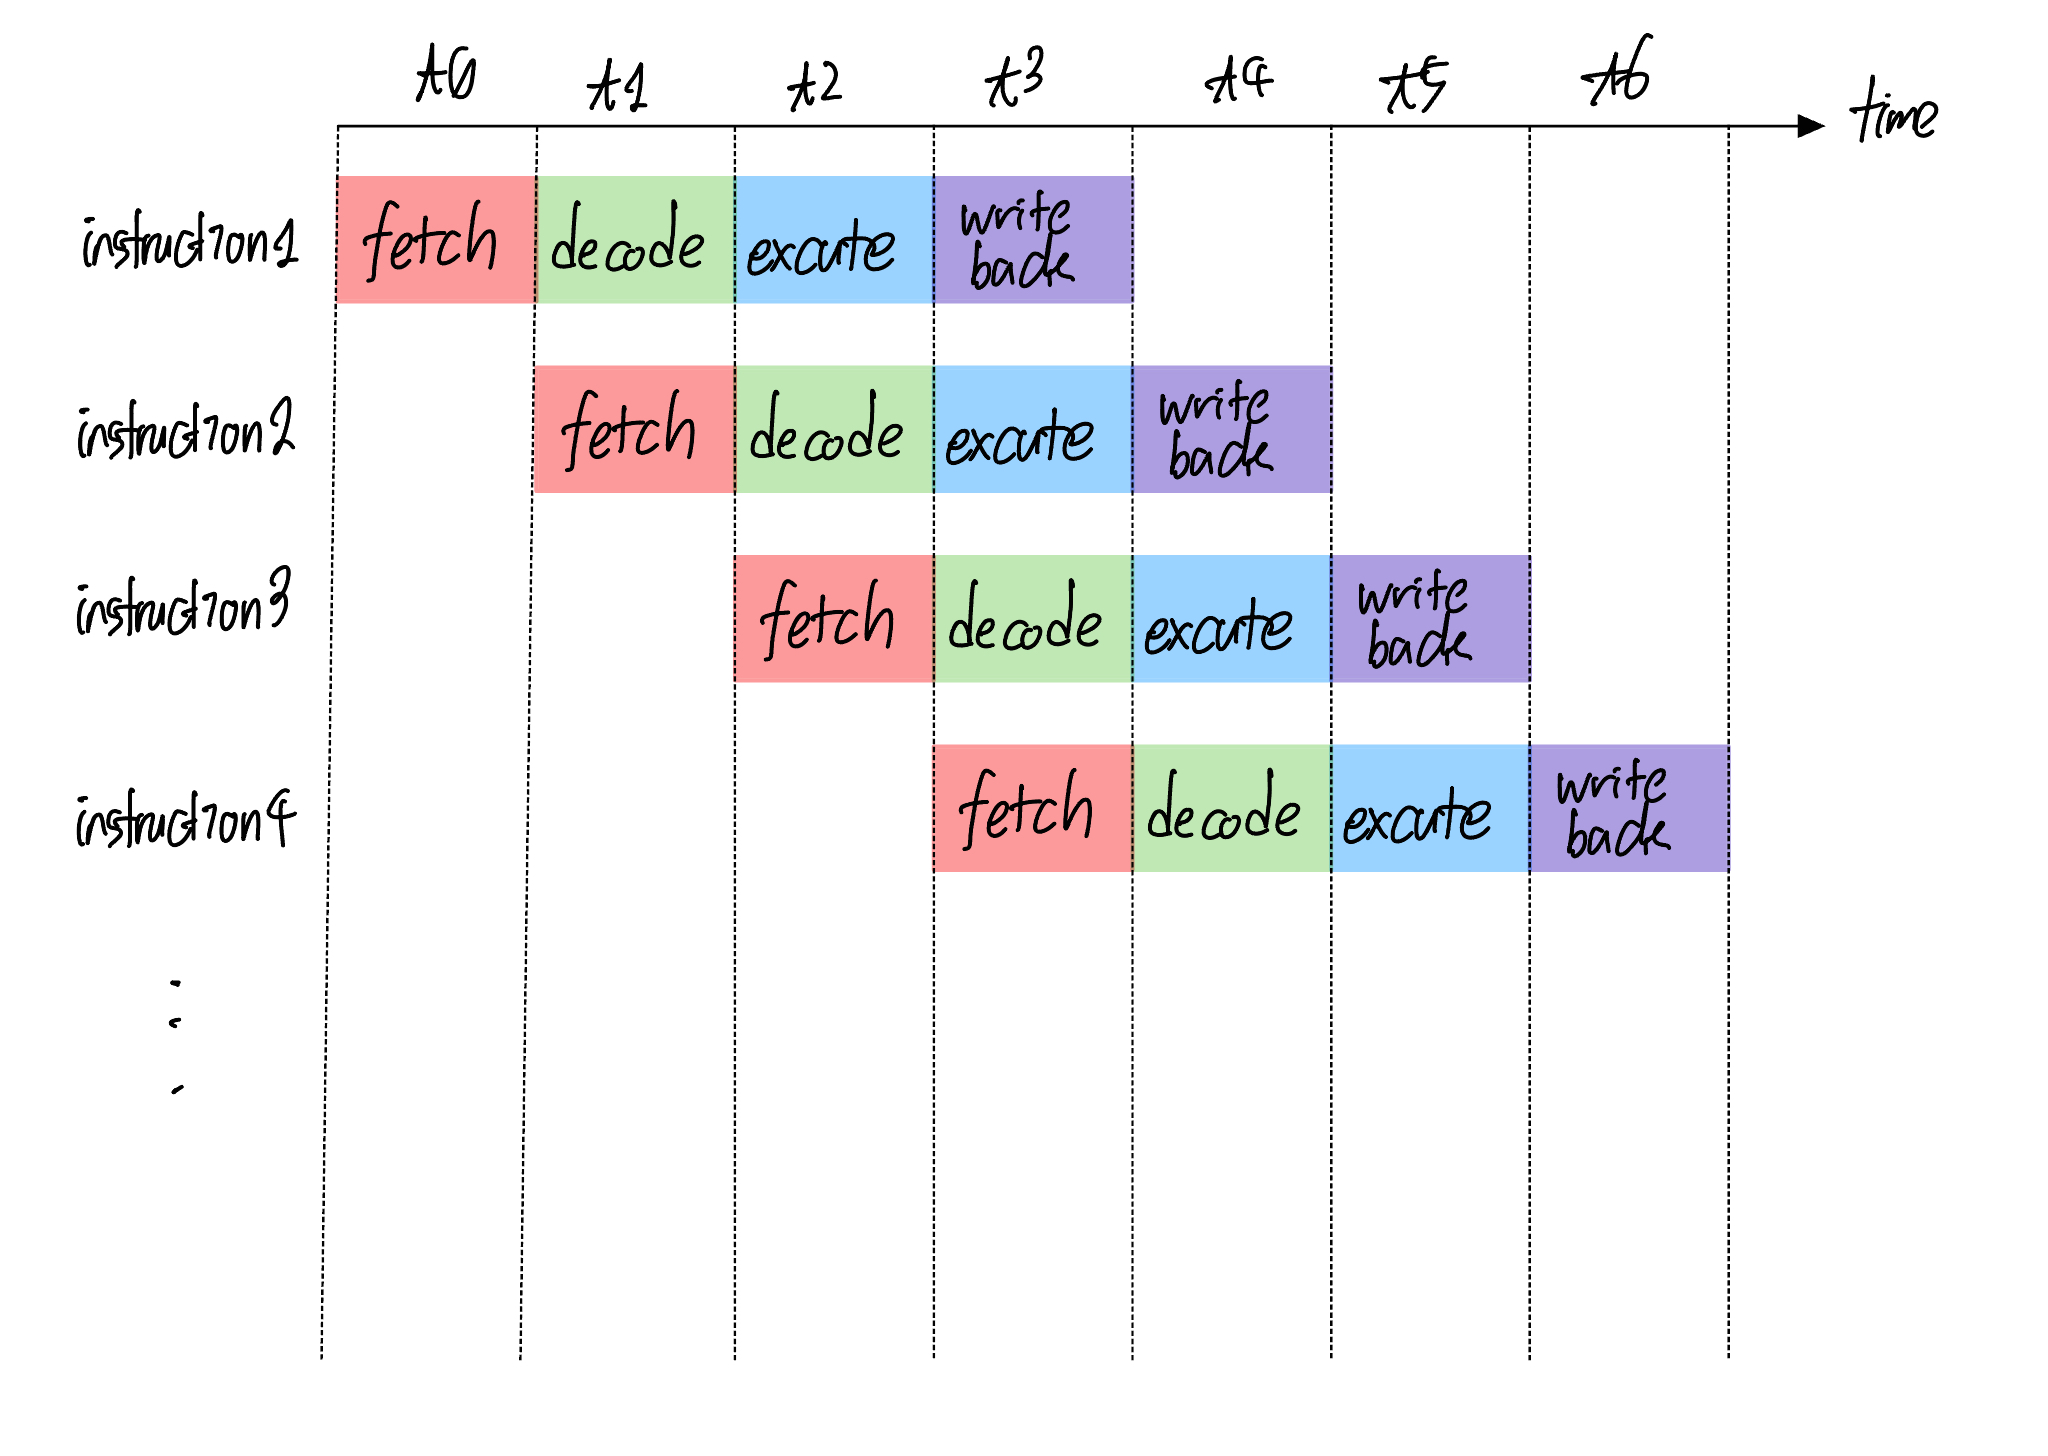 t0 t1 t2 t3 t4 t5 t6 time
instruction1 fetch decode excute write
back
instruction2 fetch decode excute write
back
instruction3 fetch decode excute write
back
instruction4 fetch decode excute write
back